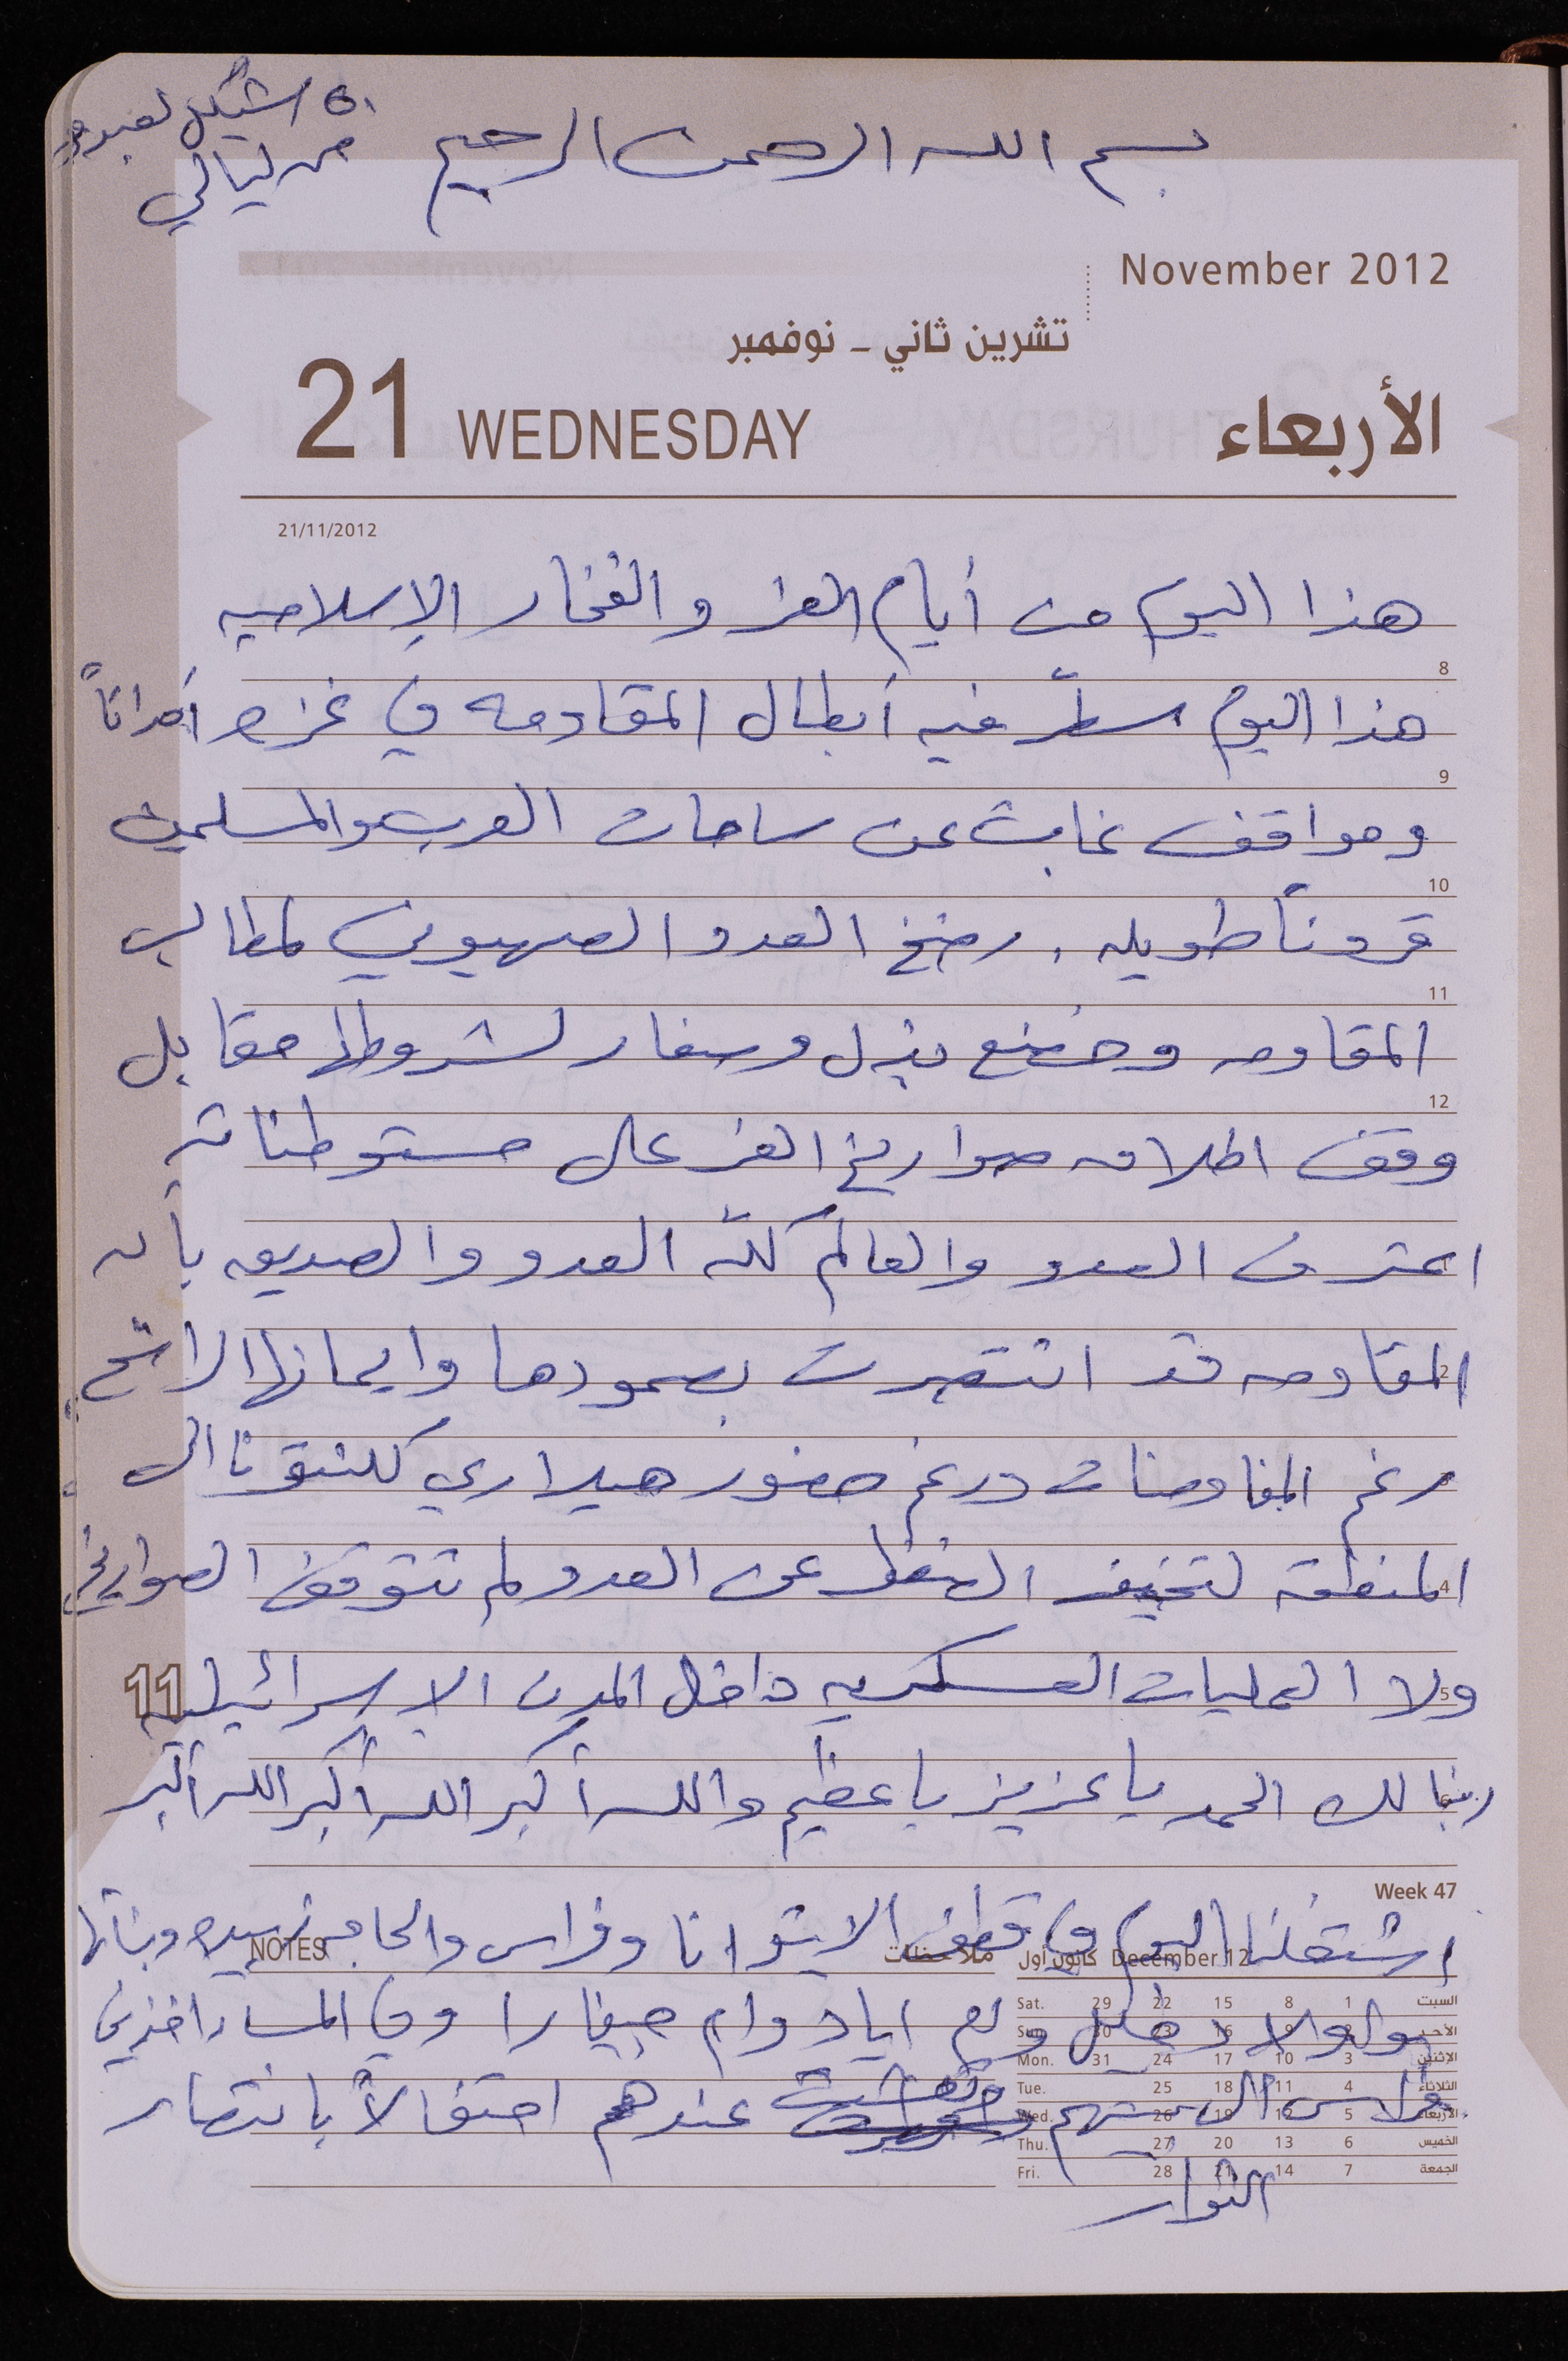 ٥٠ شيكل لعبدو
من ليالي
بسم الله الرحمن الرحيم
November 2012
تشرين ثاني - نوفمبر
21 WEDNESDAY
الأربعاء
21/11/2012
هذا اليوم من أيام العز والفخار الإسلاميه
8
هذا اليوم سطّر فيه أبطال المقاومه في غزه أحداثاً
9
ومواقف غابت عن ساحات العرب والمسلمين
10
قروناً طويله . رضخ العدو الصهيوني لمطالب
11
المقاومه وخضع بذل وصغار لشروطها مقابل
12
وقف اطلاق صواريخ العز على مستوطناته
اعترف العدو والعالم كلّه العدو والصديق بأن
1
المقاومه قد انتصرت بصمودها وايمانها الراسخ
2
رغم المفاوضات ورغم حضور هيلاري كلنتون الى
3
المنطقة لتخفيف الضغط عن العدو لم تتوقف الصواريخ
4
ولا العمليات العسكريه داخل المدن الاسرائيليه
5
11
ربنا لك الحمد يا عزيز يا عظيم والله أكبر الله أكبر الله أكبر
6
Week 47
اشتغلنا اليوم في قطف الزيتون انا وفراس والحاجه وبناتها
NOTES ملاحظات
December 12 كانون أول
والاولاد خليل ومع اياد دوام حيفارا وفي المساء اخذني
فراس الى بيتهم وتعشيت عندهم احتفالاً بانتصار
الثوار
Sat. 29 22 15 8 1 السبت
Sun. 30 23 16 9 2 الأحد
Mon. 31 24 17 10 3 الاثنين
Tue. 25 18 11 4 الثلاثاء
Wed. 26 19 12 5 الأربعاء
Thu. 27 20 13 6 الخميس
Fri. 28 21 14 7 الجمعة